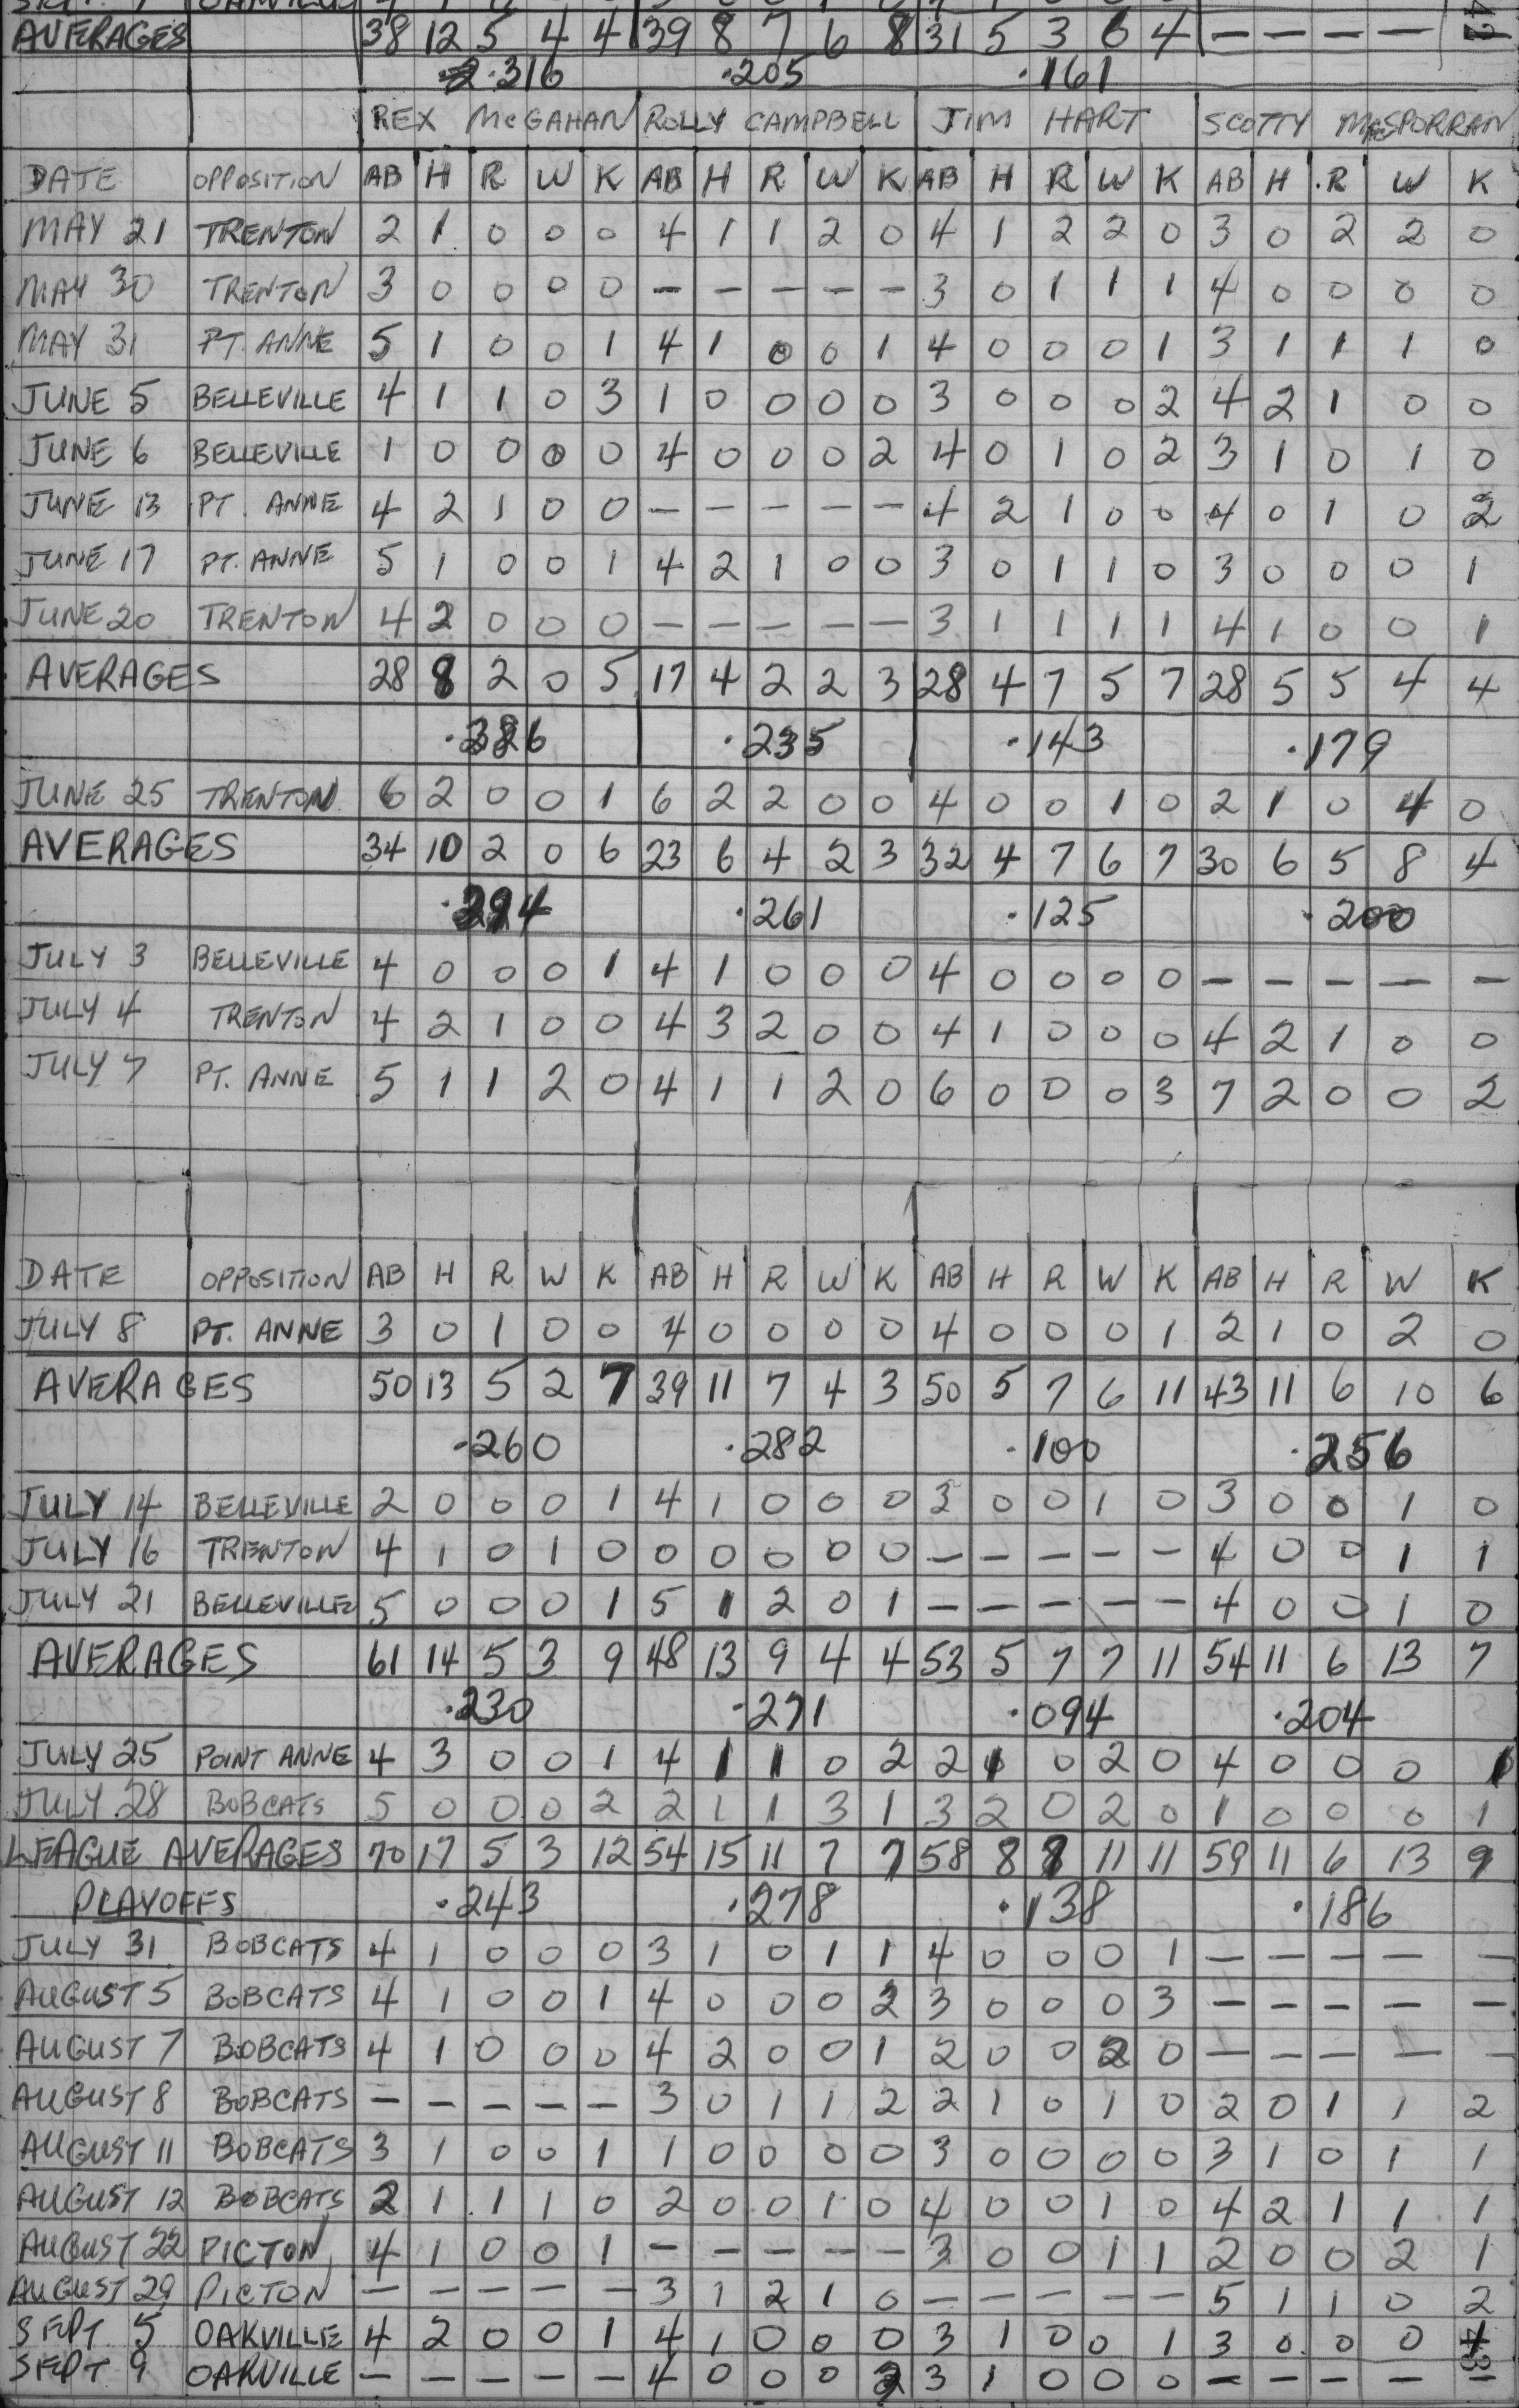 AVERAGES 38 12 5 4 4 39 8 7 6 8 31 5 3 6 4 — — — —
.316 .205 .161
REX McGAHAN ROLLY CAMPBELL JIM HART SCOTTY McSPORRAN
DATE OPPOSITION AB H R W K AB H R W K AB H R W K AB H R W K
MAY 21 TRENTON 2 1 0 0 0 4 1 1 2 0 4 1 2 2 0 3 0 2 2 0
MAY 30 TRENTON 3 0 0 0 0 — — — — — 3 0 1 1 1 4 0 0 0 0
MAY 31 PT. ANNE 5 1 0 0 1 4 1 0 0 1 4 0 0 0 1 3 1 1 1 0
JUNE 5 BELLEVILLE 4 1 1 0 3 1 0 0 0 0 3 0 0 0 2 4 2 1 0 0
JUNE 6 BELLEVILLE 1 0 0 0 0 4 0 0 0 2 4 0 1 0 2 3 1 0 1 0
JUNE 13 PT. ANNE 4 2 1 0 0 — — — — — 4 2 1 0 0 4 0 1 0 2
JUNE 17 PT. ANNE 5 1 0 0 1 4 2 1 0 0 3 0 1 1 0 3 0 0 0 1
JUNE 20 TRENTON 4 2 0 0 0 — — — — — 3 1 1 1 1 4 1 0 0 1
AVERAGES 28 8 2 0 5 17 4 2 2 3 28 4 7 5 7 28 5 5 4 4
.286 .235 .143 .179
JUNE 25 TRENTON 6 2 0 0 1 6 2 2 0 0 4 0 0 1 0 2 1 0 4 0
AVERAGES 34 10 2 0 6 23 6 4 2 3 32 4 7 6 7 30 6 5 8 4
.294 .261 .125 .200
JULY 3 BELLEVILLE 4 0 0 0 1 4 1 0 0 0 4 0 0 0 0 — — — — —
JULY 4 TRENTON 4 2 1 0 0 4 3 2 0 0 4 1 0 0 0 4 2 1 0 0
JULY 7 PT. ANNE 5 1 1 2 0 4 1 1 2 0 6 0 0 0 3 7 2 0 0 2
DATE OPPOSITION AB H R W K AB H R W K AB H R W K AB H R W K
JULY 8 PT. ANNE 3 0 1 0 0 4 0 0 0 0 4 0 0 0 1 2 1 0 2 0
AVERAGES 50 13 5 2 7 39 11 7 4 3 50 5 7 6 11 43 11 6 10 6
.260 .282 .100 .256
JULY 14 BELLEVILLE 2 0 0 0 1 4 1 0 0 0 3 0 0 1 0 3 0 0 1 0
JULY 16 TRENTON 4 1 0 1 0 0 0 0 0 0 — — — — — 4 0 0 1 1
JULY 21 BELLEVILLE 5 0 0 0 1 5 1 2 0 1 — — — — — 4 0 0 1 0
AVERAGES 61 14 5 3 9 48 13 9 4 4 53 5 7 7 11 54 11 6 13 7
.230 .271 .094 .204
JULY 25 POINT ANNE 4 3 0 0 1 4 1 1 0 2 2 1 0 2 0 4 0 0 0 1
JULY 28 BOBCATS 5 0 0 0 2 2 1 1 3 1 3 2 0 2 0 1 0 0 0 1
LEAGUE AVERAGES 70 17 5 3 12 54 15 11 7 7 58 8 8 11 11 59 11 6 13 9
PLAYOFFS .243 .278 .138 .186
JULY 31 BOBCATS 4 1 0 0 0 3 1 0 1 1 4 0 0 0 1 — — — — —
AUGUST 5 BOBCATS 4 1 0 0 1 4 0 0 0 2 3 0 0 0 3 — — — — —
AUGUST 7 BOBCATS 4 1 0 0 0 4 2 0 0 1 2 0 0 2 0 — — — — —
AUGUST 8 BOBCATS — — — — — 3 0 1 1 2 2 1 0 1 0 2 0 1 1 2
AUGUST 11 BOBCATS 3 1 0 0 1 1 0 0 0 0 3 0 0 0 0 3 1 0 1 1
AUGUST 12 BOBCATS 2 1 1 1 0 2 0 0 1 0 4 0 0 1 0 4 2 1 1 1
AUGUST 22 PICTON 4 1 0 0 1 — — — — — 3 0 0 1 1 2 0 0 2 1
AUGUST 29 PICTON — — — — — 3 1 2 1 0 — — — — — 5 1 1 0 2
SEPT. 5 OAKVILLE 4 2 0 0 1 4 1 0 0 0 3 1 0 0 1 3 0 0 0 1
SEPT 9 OAKVILLE — — — — — 4 0 0 0 2 3 1 0 0 0 — — — —
43